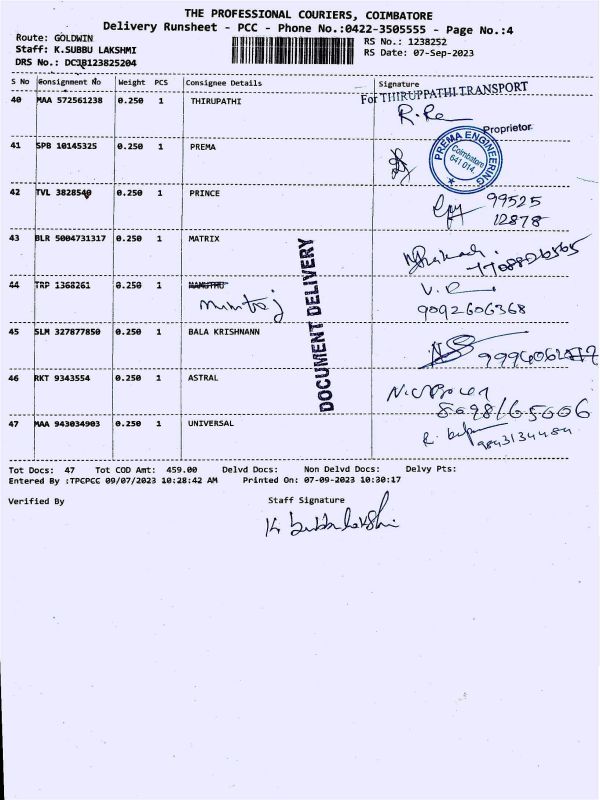 THE PROFESSIONAL COURIERS, COIMBATORE
Delivery Runsheet - PCC - Phone No.:0422-3505555 - Page No.:4
Route: GOLDWIN
Staff: K.SUBBU LAKSHMI
DRS No.: DCJB123825204
RS No.: 1238252
RS Date: 07-Sep-2023
S No Consignment No Weight PCS Consignee Details Signature
For THIRUPPATHI TRANSPORT
40 MAA 572561238 0.250 1 THIRUPATHI
Proprietor
41 SPB 10145325 0.250 1 PREMA
PREMA ENGINEERING
Coimbatore
641 014.
42 TVL 3828540 0.250 1 PRINCE 99525
12878
43 BLR 5004731317 0.250 1 MATRIX
DOCUMENT DELIVERY
44 TRP 1368261 0.250 1
9092606368
45 SLM 327877850 0.250 1 BALA KRISHNANN
46 RKT 9343554 0.250 1 ASTRAL
47 MAA 943034903 0.250 1 UNIVERSAL
Tot Docs: 47 Tot COD Amt: 459.00 Delvd Docs: Non Delvd Docs: Delvy Pts:
Entered By :TPCPCC 09/07/2023 10:28:42 AM Printed On: 07-09-2023 10:30:17
Verified By Staff Signature